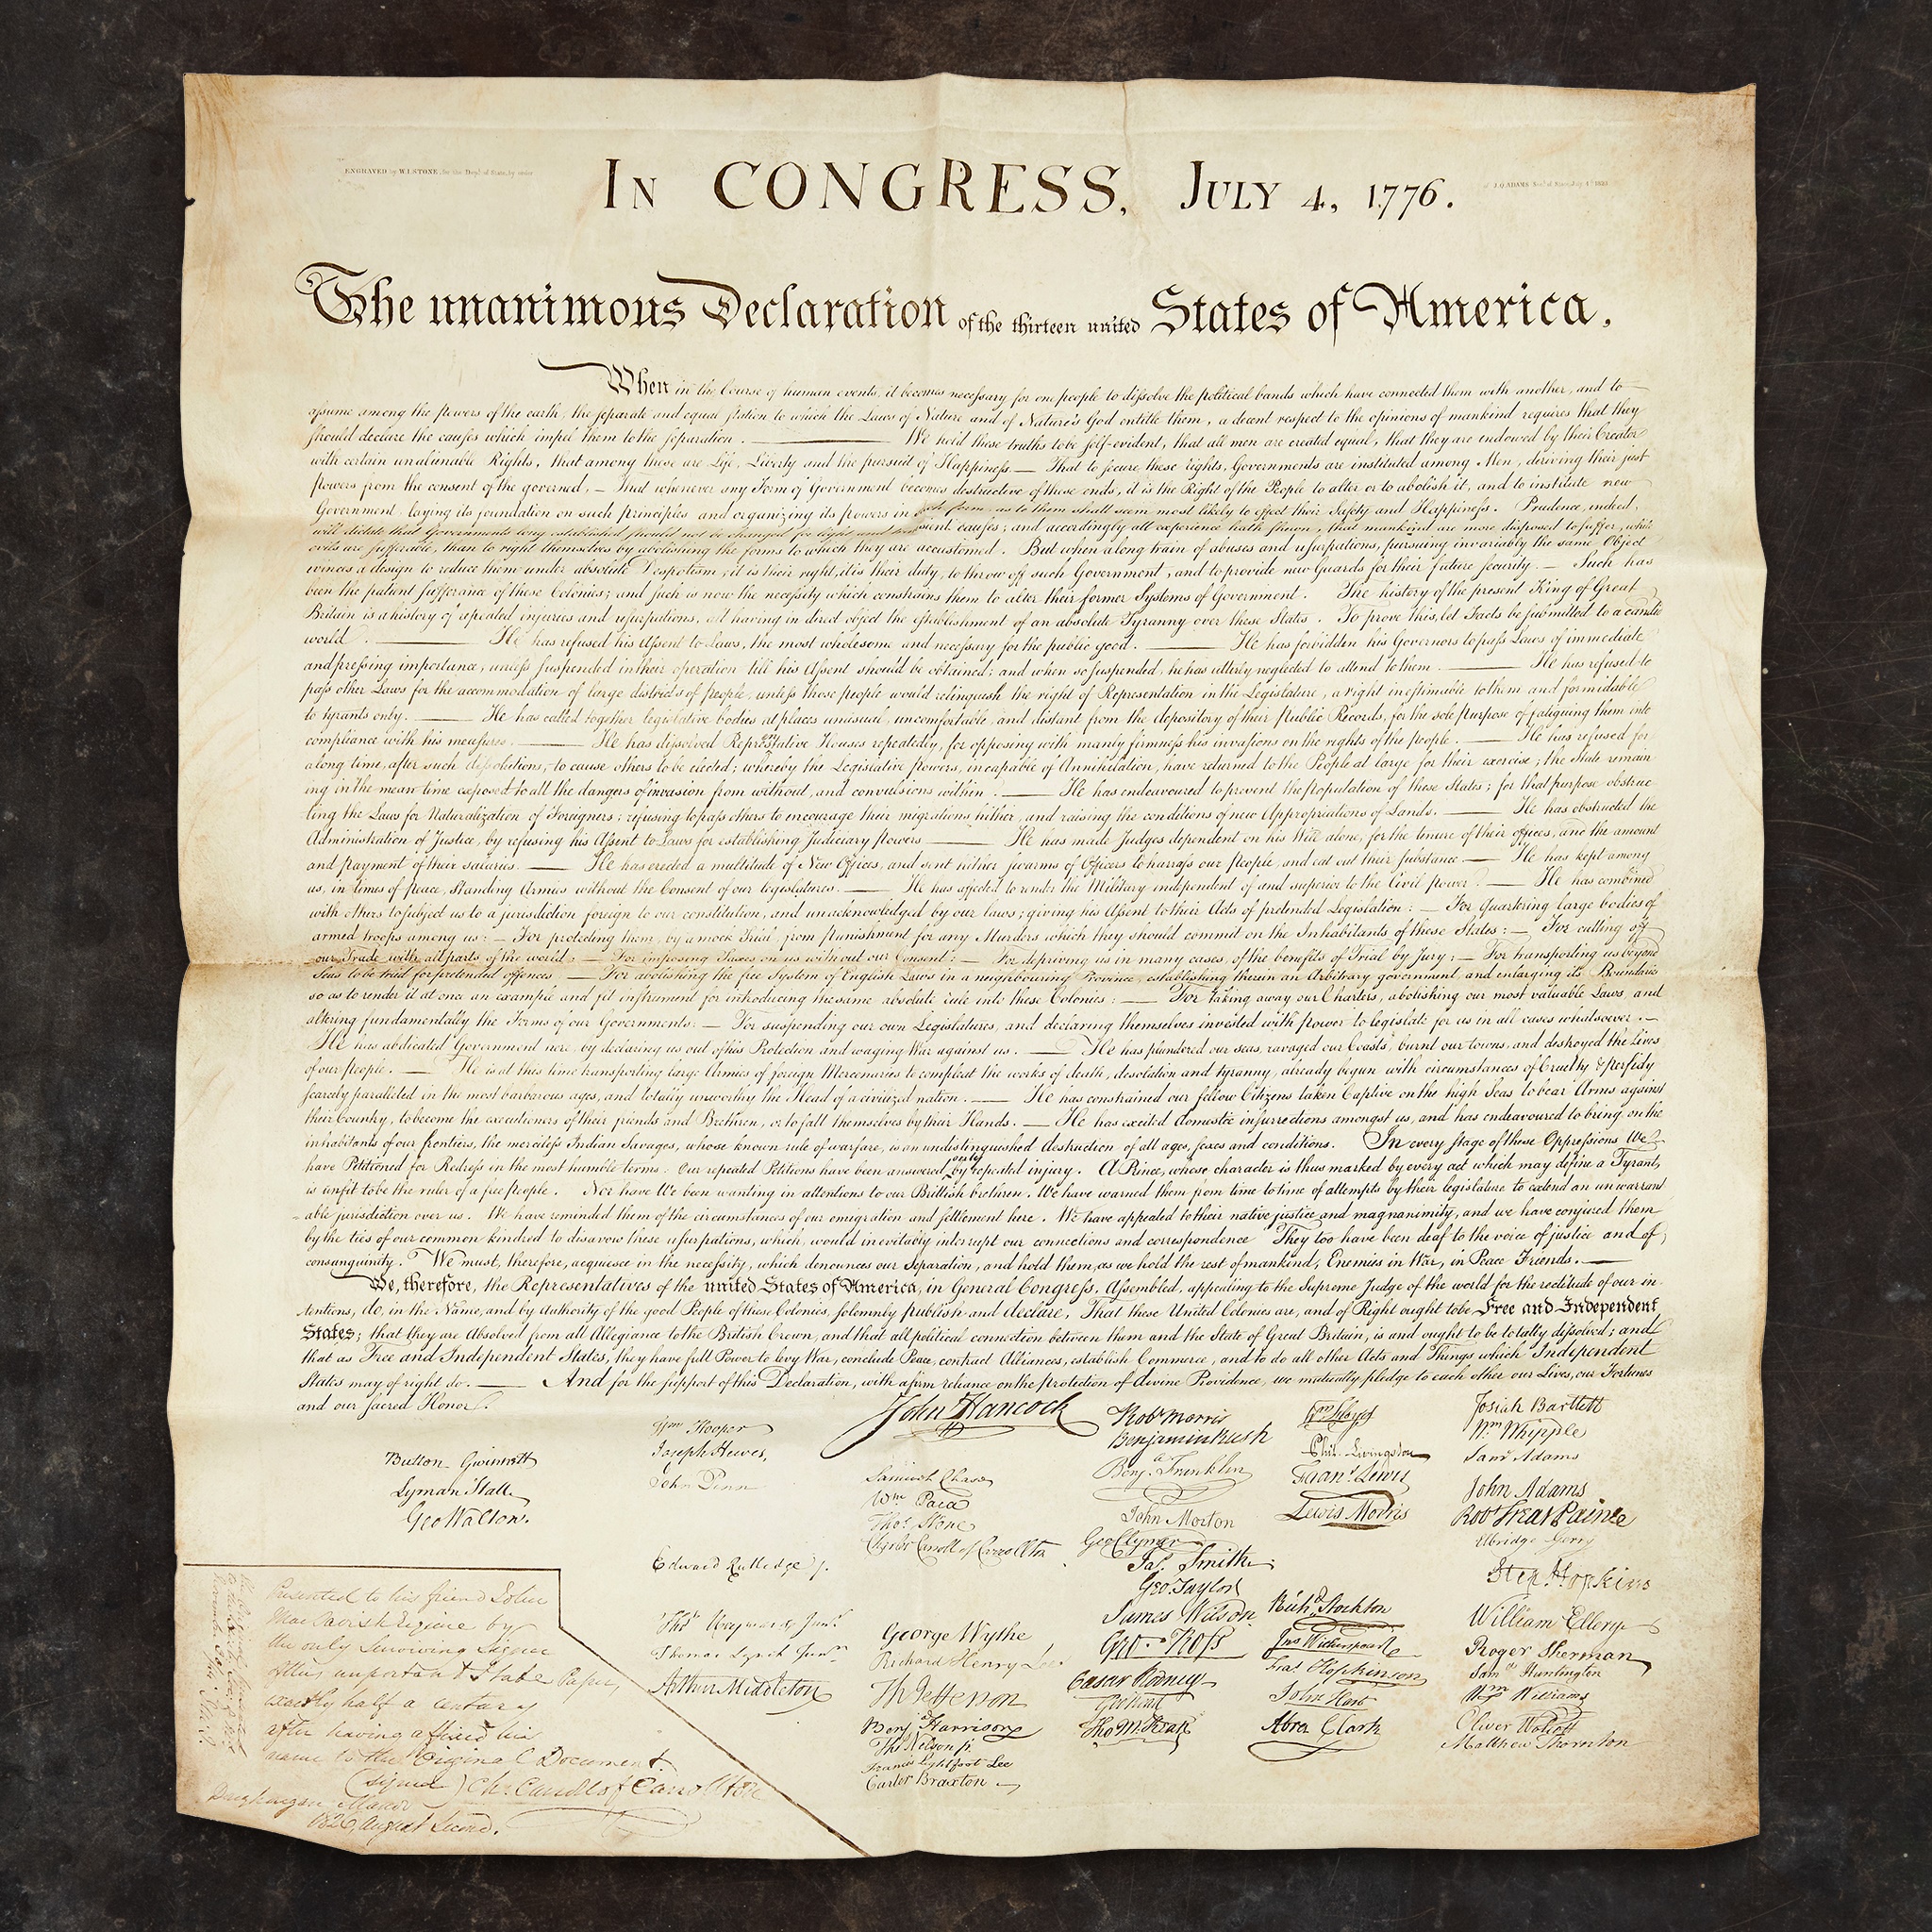 ENGRAVED by W.I.STONE, for the Dept. of State, by order
of J.Q.ADAMS Sect. of State, July 4th 1823.
In CONGRESS, July 4, 1776.
The unanimous Declaration of the thirteen united States of America,
When in the Course of human events, it becomes necessary for one people to dissolve the political bands which have connected them with another, and to
assume among the powers of the earth, the separate and equal station to which the Laws of Nature and of Nature's God entitle them, a decent respect to the opinions of mankind requires that they
should declare the causes which impel them to the separation. — We hold these truths to be self-evident, that all men are created equal, that they are endowed by their Creator
with certain unalienable Rights, that among these are Life, Liberty and the pursuit of Happiness — That to secure these rights, Governments are instituted among Men, deriving their just
powers from the consent of the governed, — That whenever any Form of Government becomes destructive of these ends, it is the Right of the People to alter or to abolish it, and to institute new
Government, laying its foundation on such principles and organizing its powers in such form, as to them shall seem most likely to effect their Safety and Happiness. Prudence, indeed,
will dictate that Governments long established should not be changed for light and transient causes; and accordingly all experience hath shewn, that mankind are more disposed to suffer, while
evils are sufferable, than to right themselves by abolishing the forms to which they are accustomed. But when a long train of abuses and usurpations, pursuing invariably the same Object
evinces a design to reduce them under absolute Despotism, it is their right, it is their duty, to throw off such Government, and to provide new Guards for their future security. — Such has
been the patient sufferance of these Colonies; and such is now the necessity which constrains them to alter their former Systems of Government. The history of the present King of Great
Britain is a history of repeated injuries and usurpations, all having in direct object the establishment of an absolute Tyranny over these States. To prove this, let Facts be submitted to a candid
world. — He has refused his Assent to Laws, the most wholesome and necessary for the public good. — He has forbidden his Governors to pass Laws of immediate
and pressing importance, unless suspended in their operation till his Assent should be obtained; and when so suspended, he has utterly neglected to attend to them. — He has refused to
pass other Laws for the accommodation of large districts of people, unless those people would relinquish the right of Representation in the Legislature, a right inestimable to them and formidable
to tyrants only. — He has called together legislative bodies at places unusual, uncomfortable, and distant from the depository of their Public Records, for the sole purpose of fatiguing them into
compliance with his measures. — He has dissolved Representative Houses repeatedly, for opposing with manly firmness his invasions on the rights of the people. — He has refused for
a long time, after such dissolutions, to cause others to be elected; whereby the Legislative powers, incapable of Annihilation, have returned to the People at large for their exercise; the State remain
ing in the mean time exposed to all the dangers of invasion from without, and convulsions within. — He has endeavoured to prevent the population of these States; for that purpose obstruc
ting the Laws for Naturalization of Foreigners; refusing to pass others to encourage their migrations hither, and raising the conditions of new Appropriations of Lands. — He has obstructed the
Administration of Justice, by refusing his Assent to Laws for establishing Judiciary powers — He has made Judges dependent on his Will alone, for the tenure of their offices, and the amount
and payment of their salaries. — He has erected a multitude of New Offices, and sent hither swarms of Officers to harrass our people, and eat out their substance. — He has kept among
us, in times of peace, Standing Armies without the Consent of our legislatures. — He has affected to render the Military independent of and superior to the Civil power. — He has combined
with others to subject us to a jurisdiction foreign to our constitution, and unacknowledged by our laws; giving his Assent to their Acts of pretended Legislation: — For Quartering large bodies of
armed troops among us: — For protecting them, by a mock Trial, from punishment for any Murders which they should commit on the Inhabitants of these States: — For cutting off
our Trade with all parts of the world: — For imposing Taxes on us without our Consent: — For depriving us in many cases, of the benefits of Trial by Jury: — For transporting us beyond
Seas to be tried for pretended offences — For abolishing the free System of English Laws in a neighbouring Province, establishing therein an Arbitrary government, and enlarging its Boundaries
so as to render it at once an example and fit instrument for introducing the same absolute rule into these Colonies: — For taking away our Charters, abolishing our most valuable Laws, and
altering fundamentally the Forms of our Governments: — For suspending our own Legislatures, and declaring themselves invested with power to legislate for us in all cases whatsoever. —
He has abdicated Government here, by declaring us out of his Protection and waging War against us. — He has plundered our seas, ravaged our Coasts, burnt our towns, and destroyed the Lives
of our people. — He is at this time transporting large Armies of foreign Mercenaries to compleat the works of death, desolation and tyranny, already begun with circumstances of Cruelty & perfidy
scarcely paralleled in the most barbarous ages, and totally unworthy the Head of a civilized nation. — He has constrained our fellow Citizens taken Captive on the high Seas to bear Arms against
their Country, to become the executioners of their friends and Brethren, or to fall themselves by their Hands. — He has excited domestic insurrections amongst us, and has endeavoured to bring on the
inhabitants of our frontiers, the merciless Indian Savages, whose known rule of warfare, is an undistinguished destruction of all ages, sexes and conditions. In every stage of these Oppressions We
have Petitioned for Redress in the most humble terms: Our repeated Petitions have been answered only by repeated injury. A Prince, whose character is thus marked by every act which may define a Tyrant,
is unfit to be the ruler of a free people. Nor have We been wanting in attentions to our Brittish brethren. We have warned them from time to time of attempts by their legislature to extend an unwarrant
able jurisdiction over us. We have reminded them of the circumstances of our emigration and settlement here. We have appealed to their native justice and magnanimity, and we have conjured them
by the ties of our common kindred to disavow these usurpations, which, would inevitably interrupt our connections and correspondence They too have been deaf to the voice of justice and of
consanguinity. We must, therefore, acquiesce in the necessity, which denounces our Separation, and hold them, as we hold the rest of mankind, Enemies in War, in Peace Friends. —
We, therefore, the Representatives of the united States of America, in General Congress, Assembled, appealing to the Supreme Judge of the world for the rectitude of our in
tentions, do, in the Name, and by Authority of the good People of these Colonies, solemnly publish and declare, That these United Colonies are, and of Right ought to be Free and Independent
States; that they are Absolved from all Allegiance to the British Crown, and that all political connection between them and the State of Great Britain, is and ought to be totally dissolved; and
that as Free and Independent States, they have full Power to levy War, conclude Peace, contract Alliances, establish Commerce, and to do all other Acts and Things which Independent
States may of right do. — And for the support of this Declaration, with a firm reliance on the protection of divine Providence, we mutually pledge to each other our Lives, our Fortunes
and our sacred Honor.
Button Gwinnett
Lyman Hall
Geo Walton.
Wm Hooper
Joseph Hewes,
John Penn
Edward Rutledge
Thos Heyward Junr
Thomas Lynch Junr
Arthur Middleton
John Hancock
Samuel Chase
Wm Paca
Thos Stone
Charles Carroll of Carrollton
George Wythe
Richard Henry Lee
Th Jefferson
Benj Harrison
Thos Nelson jr.
Francis Lightfoot Lee
Carter Braxton
Robt Morris
Benjamin Rush
Benj. Franklin
John Morton
Geo Clymer
Jas. Smith
Geo. Taylor
James Wilson
Geo. Ross
Caesar Rodney
Geo Read
Tho M:Kean
Wm Floyd
Phil. Livingston
Frans Lewis
Lewis Morris
Richd Stockton
Jno Witherspoon
Fras Hopkinson
John Hart
Abra Clark
Josiah Bartlett
Wm Whipple
Saml Adams
John Adams
Robt Treat Paine
Elbridge Gerry
Step. Hopkins
William Ellery
Roger Sherman
Saml Huntington
Wm Williams
Oliver Wolcott
Matthew Thornton
Presented to his friend John
MacTavish Esquire by
the only surviving Signer
of this important State Paper,
exactly half a century
after having affixed his
name to the Original Document.
(signed) Ch. Carroll of Carrollton
Doughoregan Manor
1826, August Second.